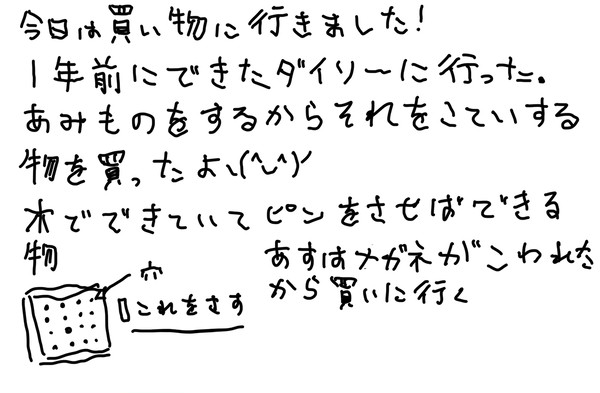 今日は買い物に行きました!
1年前にできたダイソーに行った。
あみものをするからそれをこていする
物を買ったよ、(^◡^)
木でできていてピンをさせばできる
物
穴
これをさす
あすはメガネがこわれた
から買いに行く